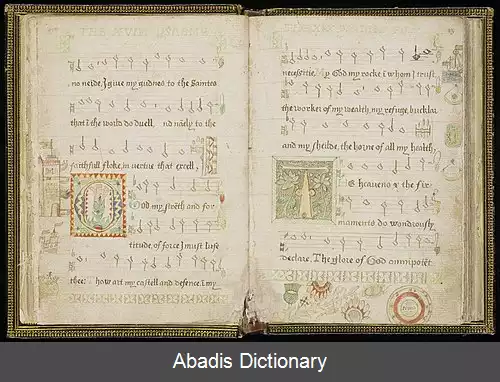 no neide, I give my gudnes to the Saintes
that I the world do duell, nd naely to the
faithfull floke, in vertue that excell,
od my strēth and for
titude, of force I must luse
thee: how art my castell and defence, I my
necessitie. y God my rocke I whom I trust,
the worker of my wealth, my refuge, buckler
and my sheilde, the horne of all my health,
E heauens & the fir
maments do wondrously
declare, The glore of God omnipotēt
Abadis Dictionary